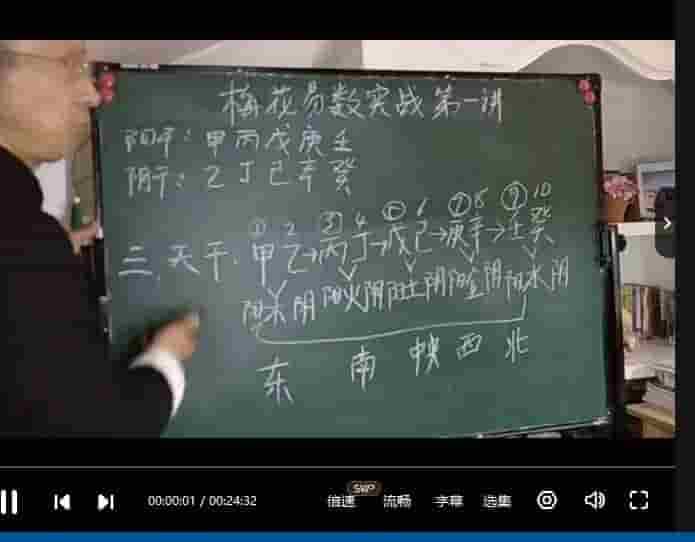 梅花易数实战第一讲
阳干：甲丙戊庚壬
阴干：乙丁己辛癸
① 2 ③ 4 ⑤ 6 ⑦ 8 ⑨ 10
三、天干：甲乙→丙丁→戊己→庚辛→壬癸
阳木阴 阳火阴 阳土阴 阳金阴 阳水阴
东 南 中央 西 北
00:00:01 / 00:24:32 倍速 SWP 流畅 字幕 选集